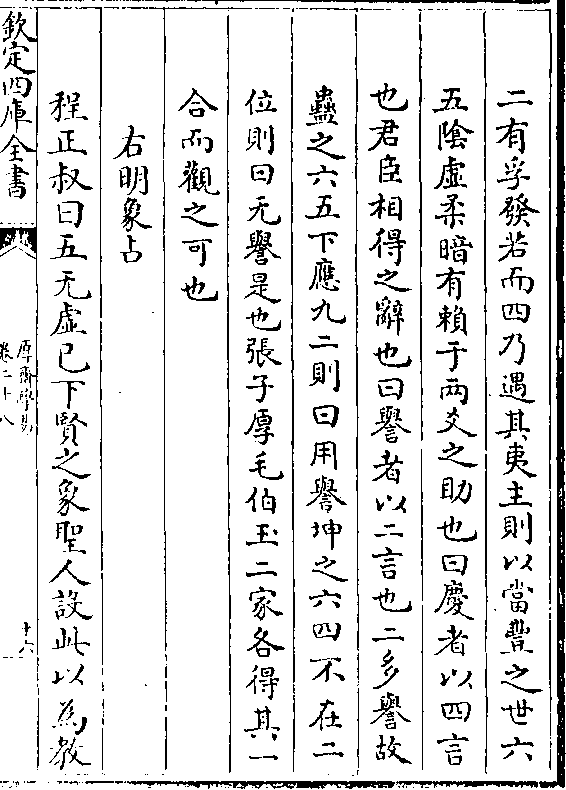 二有孚發若而四乃遇其夷主則以當豐之世六
五陰虛柔暗有賴于兩爻之助也曰慶者以四言
也君臣相得之辭也曰譽者以二言也二多譽故
蠱之六五下應九二則曰用譽坤之六四不在二
位則曰无譽是也張子厚毛伯玉二家各得其一
合而觀之可也
右明象占
程正叔曰五无虛已下賢之象聖人設此以為教
欽定四庫全書
厚齋易學
卷二十八
十六